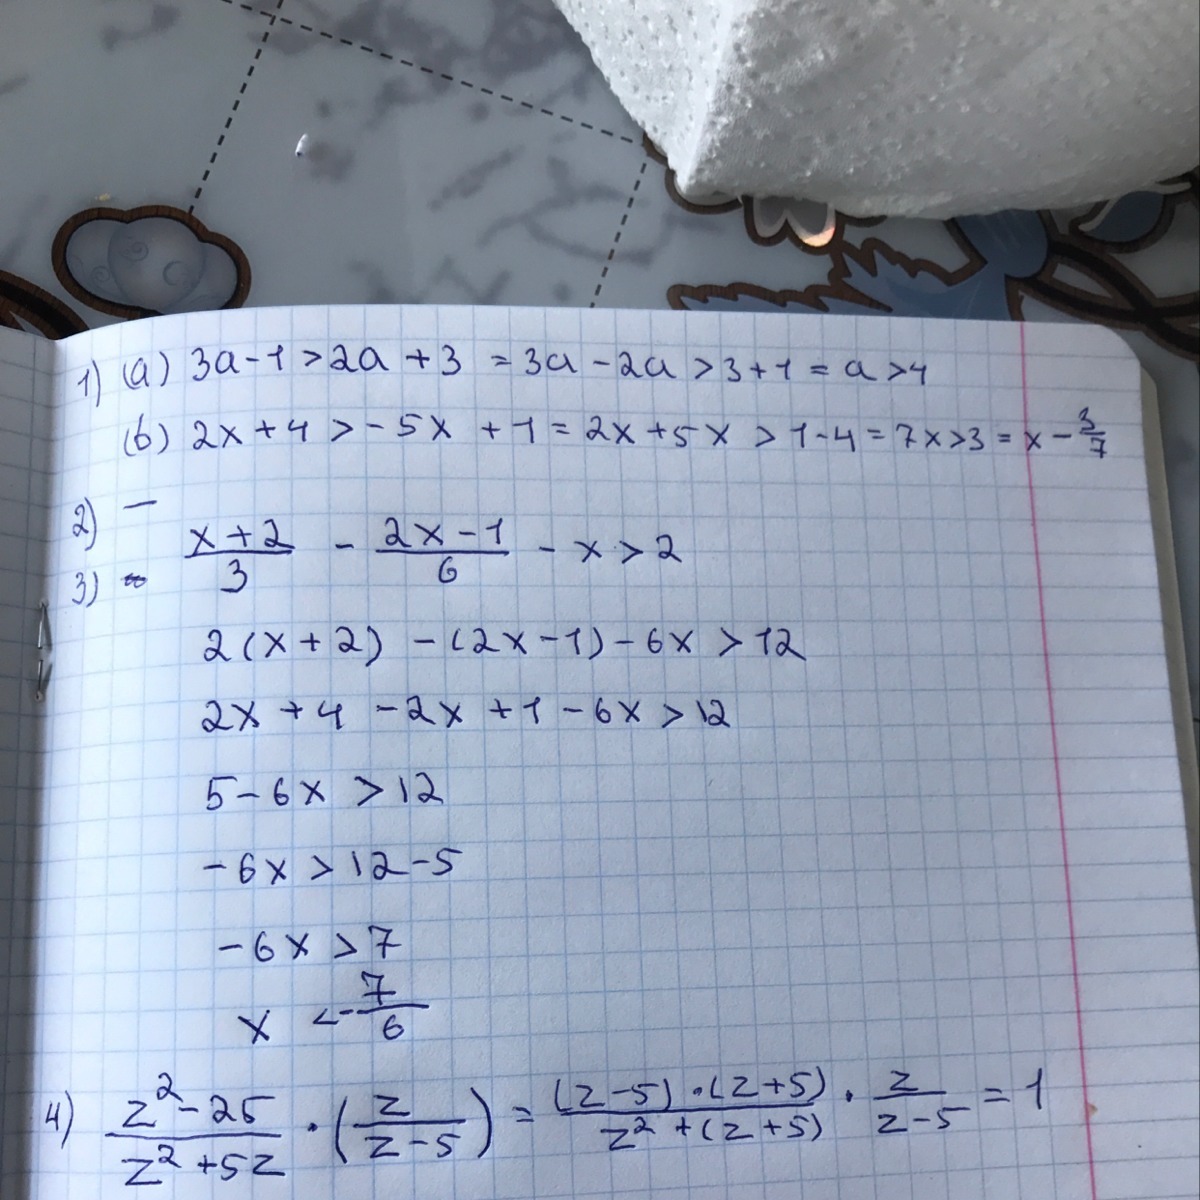 1) (a) 3a-1>2a+3 = 3a-2a>3+1 = a>4
(b) 2x+4>-5x+1 = 2x+5x>1-4 = 7x>3 = x-3/7
2) -
(x+2)/3 - (2x-1)/6 - x>2
3)
2(x+2) -(2x-1)-6x>12
2x+4-2x+1-6x>12
5-6x>12
-6x>12-5
-6x>7
x <-7/6
4) (z²-25)/(z²+5z) · (z/(z-5)) = ((z-5)·(z+5))/(z²+(z+5)) · z/(z-5) = 1